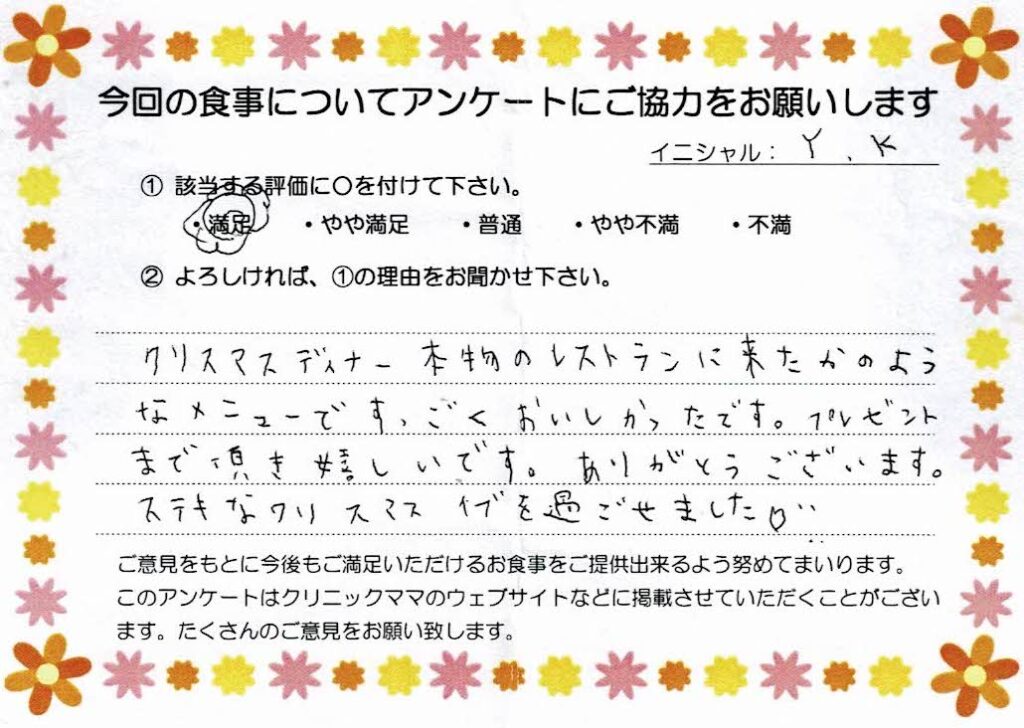 今回の食事についてアンケートにご協力をお願いします
イニシャル： Y . K
① 該当する評価に〇を付けて下さい。
・満足 ・やや満足 ・普通 ・やや不満 ・不満
② よろしければ、①の理由をお聞かせ下さい。
クリスマスディナー本物のレストランに来たかのよう
なメニューですっごくおいしかったです。プレゼント
まで頂き嬉しいです。ありがとうございます。
ステキなクリスマスイブを過ごせました♡
ご意見をもとに今後もご満足いただけるお食事をご提供出来るよう努めてまいります。
このアンケートはクリニックママのウェブサイトなどに掲載させていただくことがござい
ます。たくさんのご意見をお願い致します。